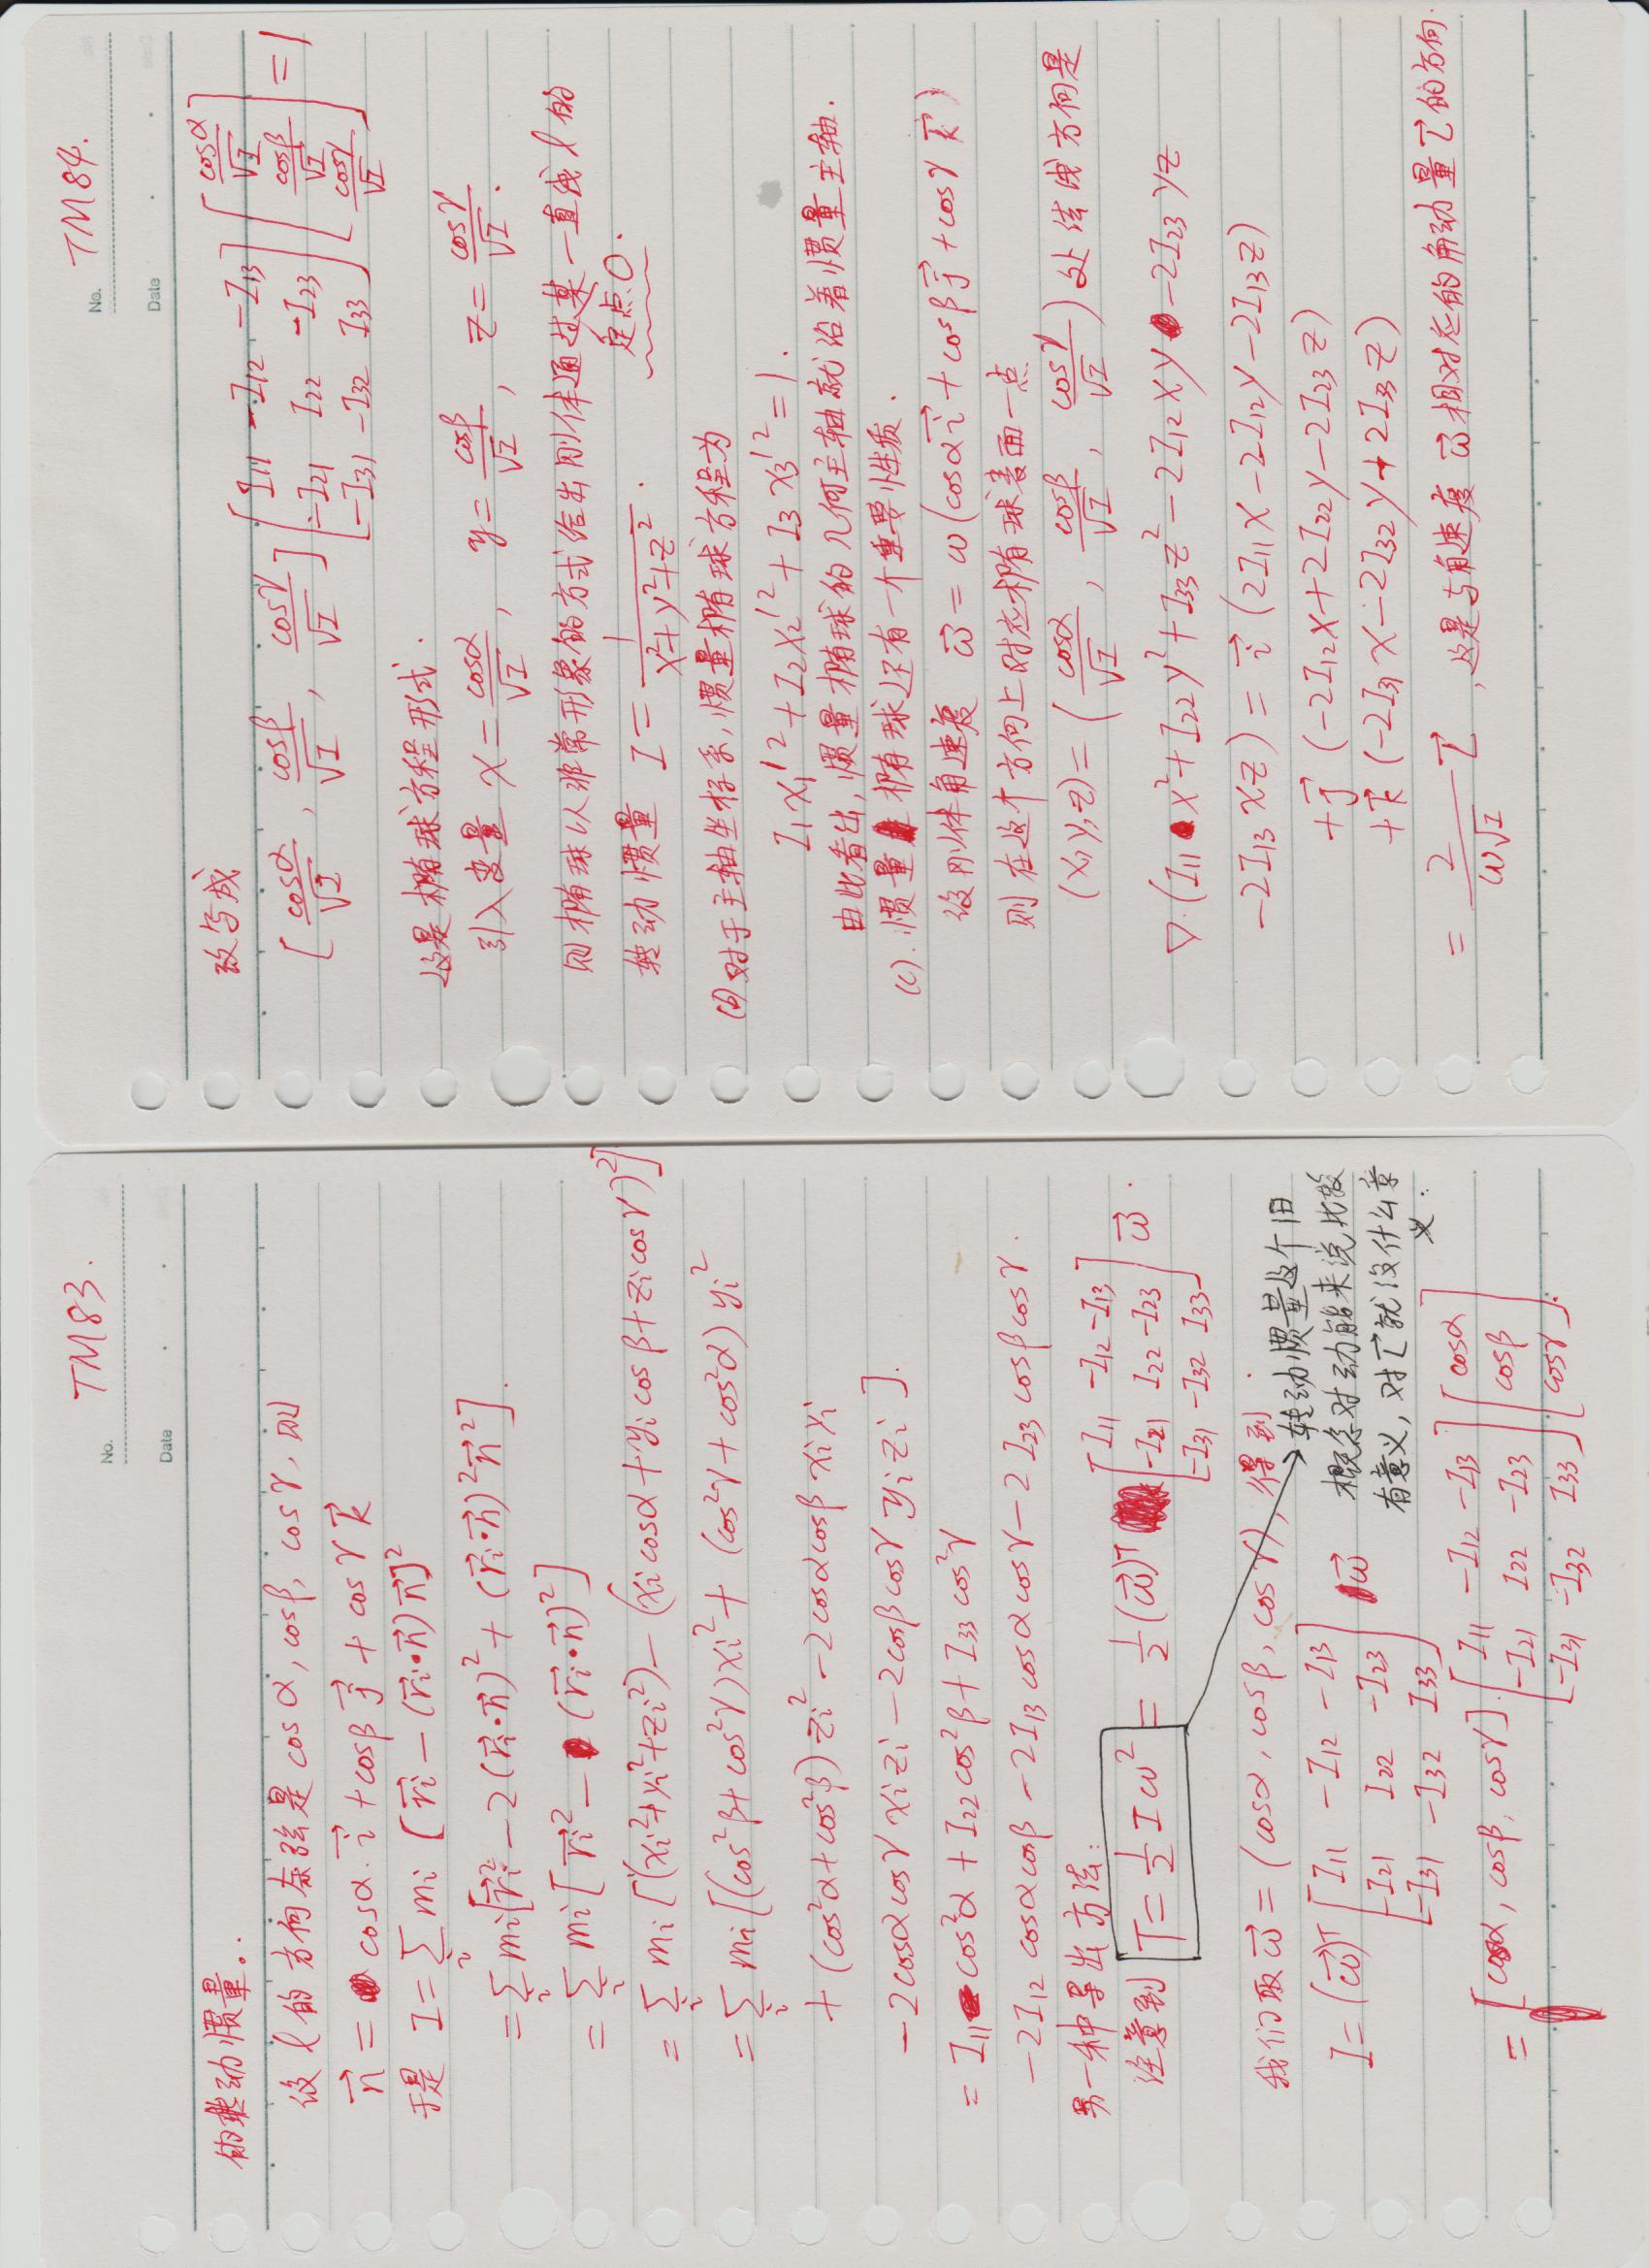 No. TM83.
Date
的转动惯量..
设 l 的方向余弦是 cosα, cosβ, cosγ, 则
n⃗ = cosα·i⃗ + cosβ j⃗ + cosγ k⃗
于是 I = ∑_i mi [r⃗i − (r⃗i·n⃗) n⃗]²
= ∑_i mi [r⃗i² − 2(r⃗i·n⃗)² + (r⃗i·n⃗)² n⃗²].
= ∑_i mi [r⃗i² − (r⃗i·n⃗)²]
= ∑_i mi [(xi²+yi²+zi²) − (xi cosα + yi cosβ + zi cosγ)²]
= ∑_i mi [(cos²β + cos²γ) xi² + (cos²γ + cos²α) yi²
+ (cos²α + cos²β) zi² − 2cosαcosβ xi yi
− 2cosαcosγ xi zi − 2cosβcosγ yi zi ].
= I11 cos²α + I22 cos²β + I33 cos²γ
− 2I12 cosαcosβ − 2I13 cosαcosγ − 2I23 cosβcosγ.
另一种导出方法:
注意到 T = ½ I ω² = ½ (ω⃗)ᵀ [I11 −I12 −I13
−I21 I22 −I23
−I31 −I32 I33] ω⃗.
我们取 ω⃗ = (cosα, cosβ, cosγ), 得到
转动惯量这个旧
概念对动能来说比较
有意义, 对 L⃗ 就没什么意
义.
I = (ω⃗)ᵀ [I11 −I12 −I13
−I21 I22 −I23
−I31 −I32 I33] ω⃗
= [cosα, cosβ, cosγ]·[I11 −I12 −I13
−I21 I22 −I23
−I31 −I32 I33] [cosα
cosβ
cosγ].
No. TM84.
Date
改写成
[cosα/√I, cosβ/√I, cosγ/√I] [I11 −I12 −I13
−I21 I22 −I23
−I31 −I32 I33] [cosα/√I
cosβ/√I
cosγ/√I] = 1
这是椭球方程形式.
引入变量 x = cosα/√I, y = cosβ/√I, z = cosγ/√I.
则椭球以非常形象的方式给出刚体通过某一直线 l 的
定点O.
转动惯量 I = 1/(x²+y²+z²).
(b) 对于主轴坐标系, 惯量椭球方程为
I1 x1'² + I2 x2'² + I3 x3'² = 1.
由此看出, 惯量椭球的几何主轴就沿着惯量主轴.
(c). 惯量椭球还有一个重要性质.
设刚体角速度 ω⃗ = ω(cosα i⃗ + cosβ j⃗ + cosγ k⃗)
则在这个方向上对应椭球表面一点
(x, y, z) = (cosα/√I, cosβ/√I, cosγ/√I) 处法线方向是
∇·(I11 x² + I22 y² + I33 z² − 2I12 xy − 2I23 yz
− 2I13 xz) = i⃗ (2I11x − 2I12y − 2I13z)
+ j⃗ (−2I12x + 2I22y − 2I23z)
+ k⃗ (−2I31x − 2I32y + 2I33z)
= 2/(ω√I) L⃗, 这是与角速度 ω⃗ 相对应的角动量 L⃗ 的方向.